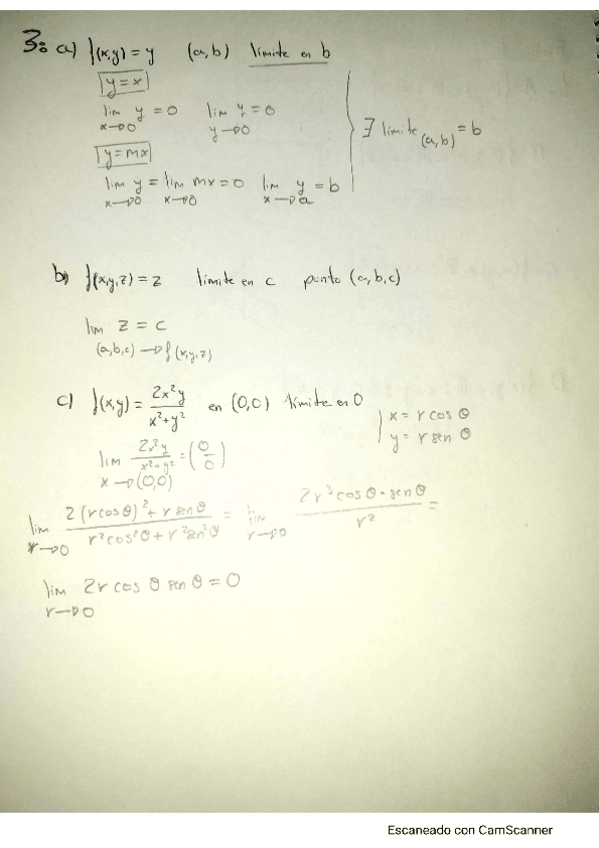 3: a) f(x,y) = y (a,b) límite en b
y=x
lim x→0 y = 0 lim y→0 y = 0
∃ límite (a,b) = b
y=mx
lim x→0 y = lim x→0 mx = 0 lim x→a y = b
b) f(x,y,z) = z límite en c punto (a,b,c)
lim z = c
(a,b,c) → f(x,y,z)
c) f(x,y) = 2x²y / x²+y² en (0,0) límite en 0
x = r cos θ
y = r sen θ
lim x→(0,0) 2x²y / x²+y² = (0/0)
lim r→0 2(r cos θ)² + r sen θ / r² cos² θ + r² sen² θ = lim r→0 2r³ cos θ · sen θ / r² =
lim r→0 2r cos θ sen θ = 0
Escaneado con CamScanner